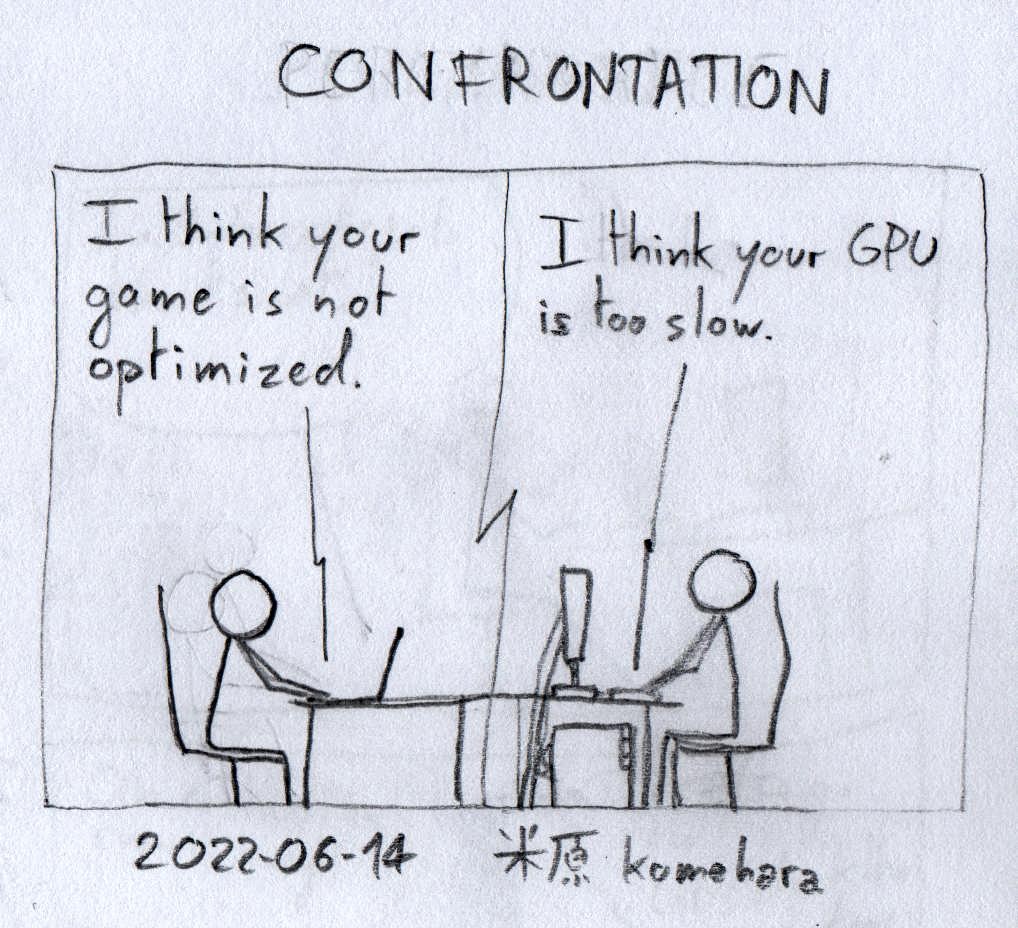 CONFRONTATION
I think your
game is not
optimized.
I think your GPU
is too slow.
2022-06-14 米原 komehara